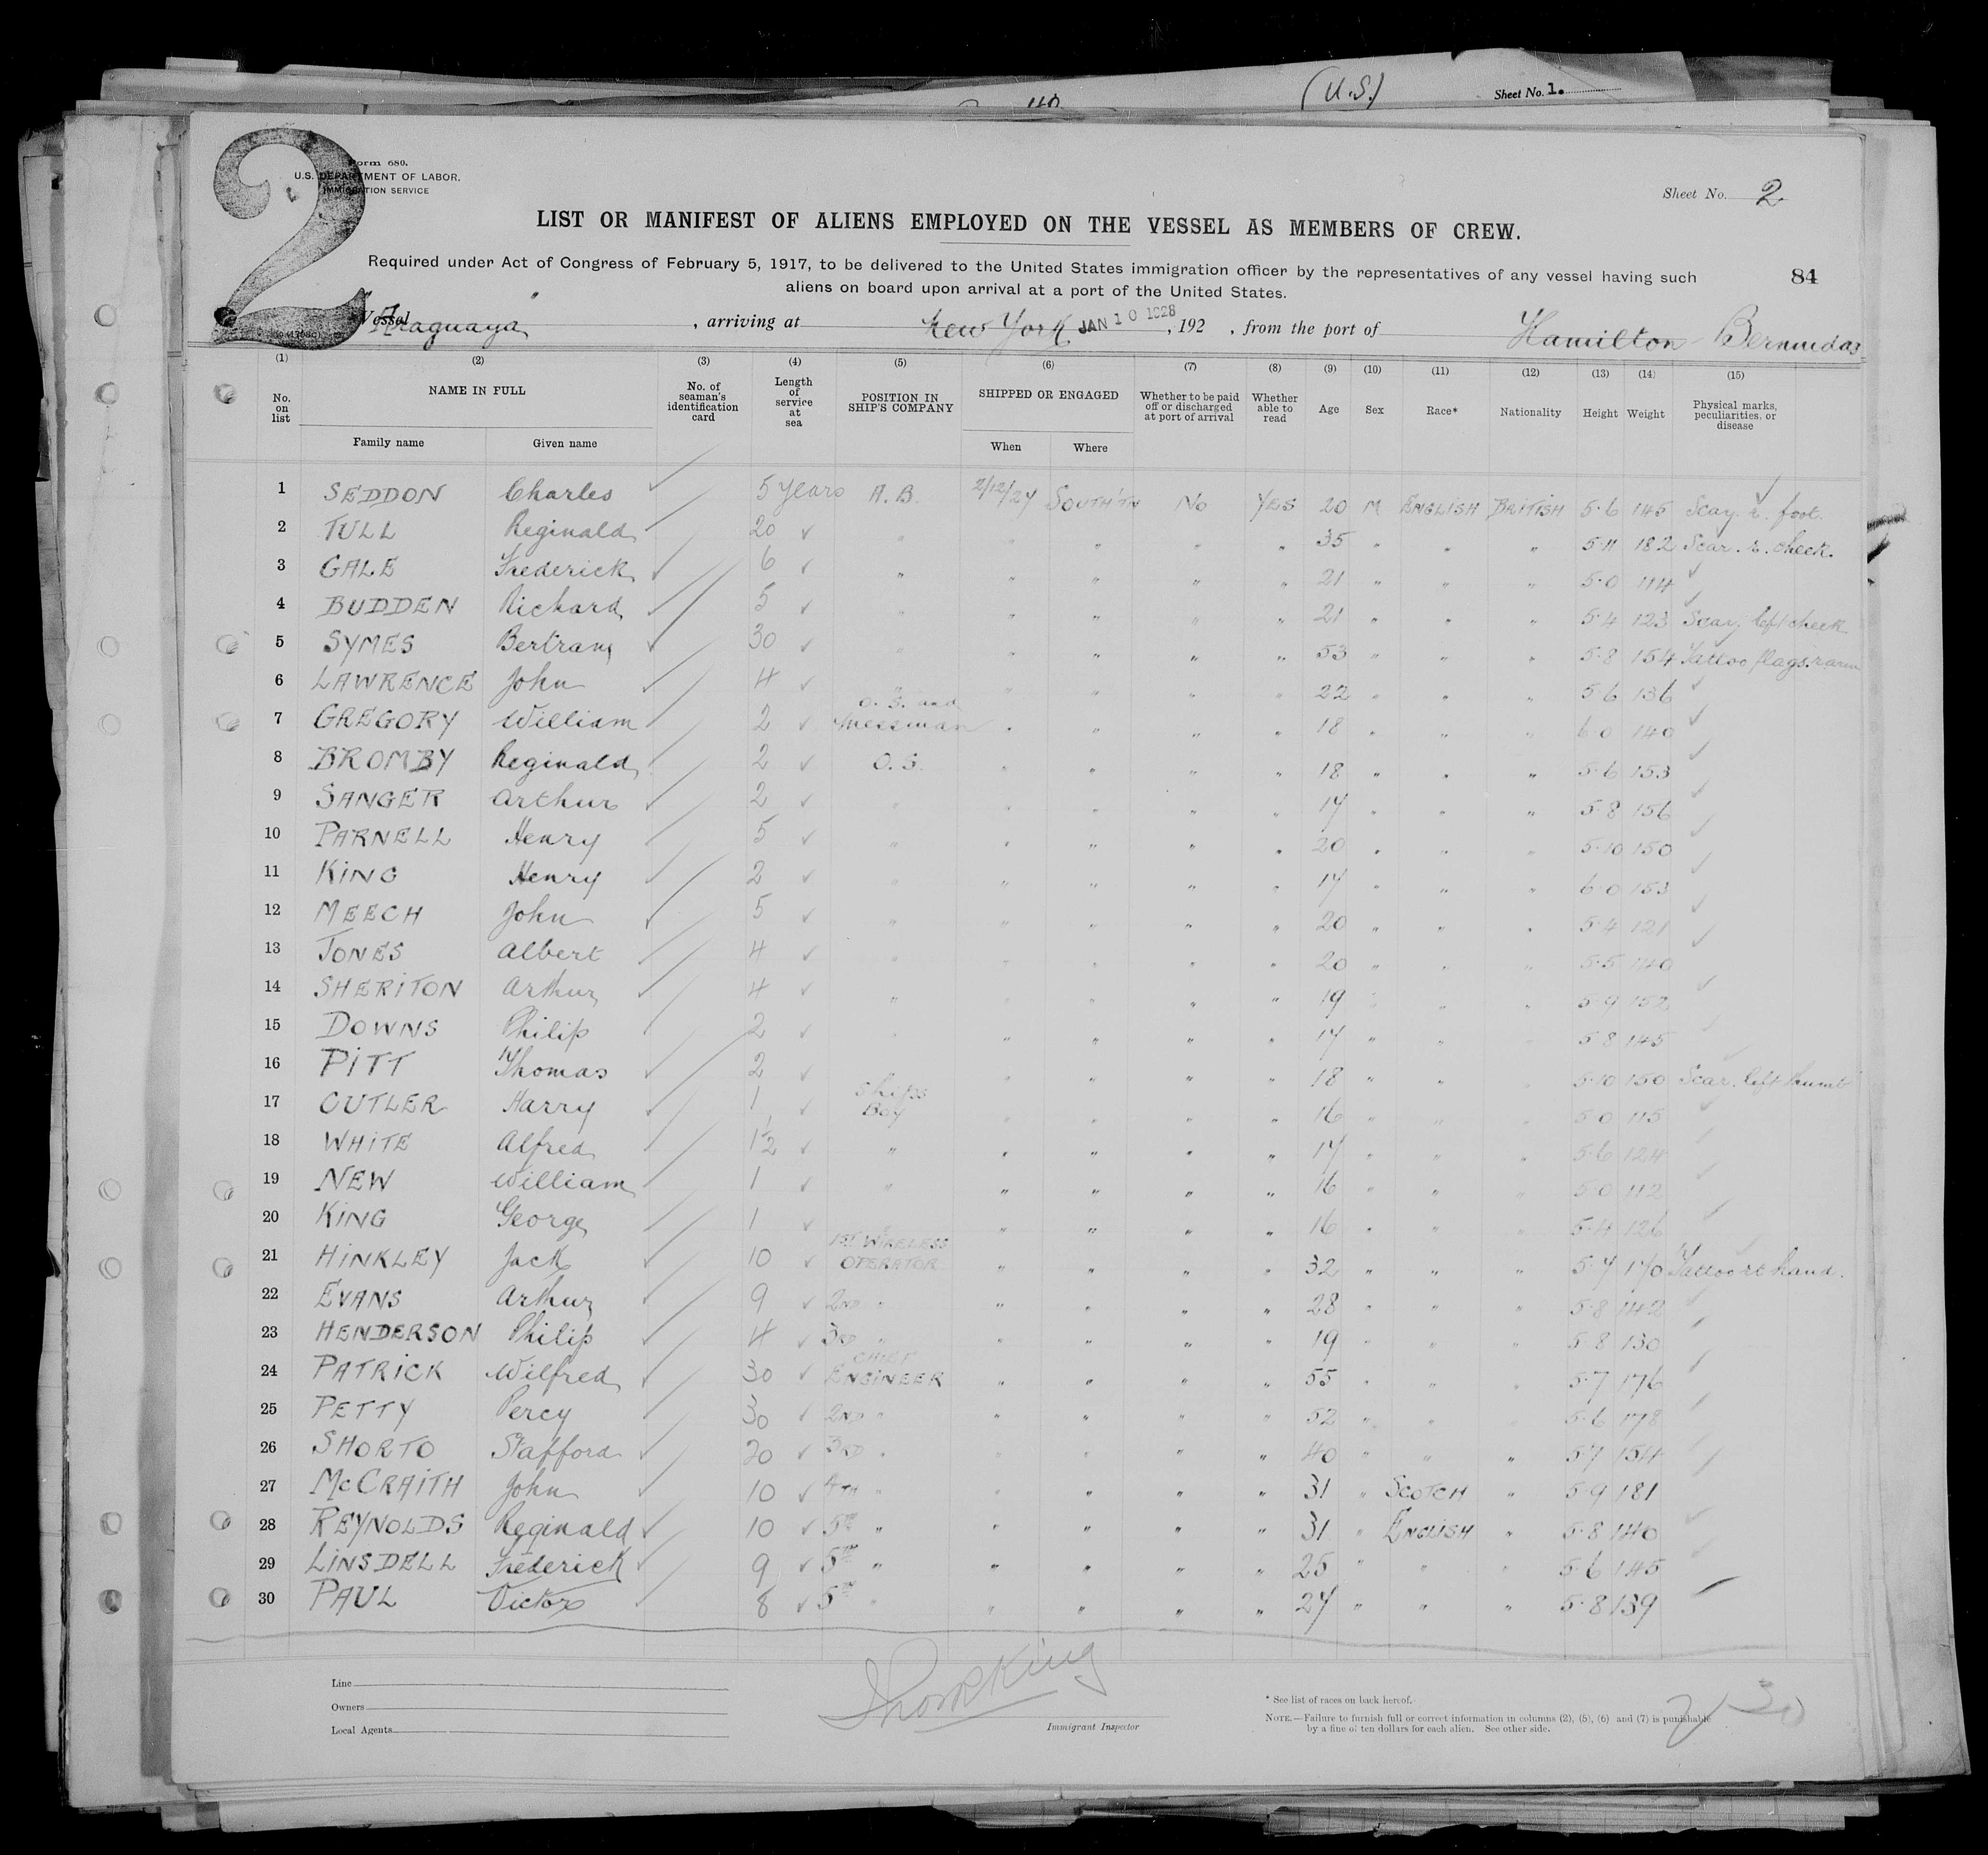 (U.S.)
Sheet No. 1.
2
Form 680.
U.S. DEPARTMENT OF LABOR.
IMMIGRATION SERVICE
Sheet No. 2
LIST OR MANIFEST OF ALIENS EMPLOYED ON THE VESSEL AS MEMBERS OF CREW.
Required under Act of Congress of February 5, 1917, to be delivered to the United States immigration officer by the representatives of any vessel having such
aliens on board upon arrival at a port of the United States.
84
Vessel Araguaya, arriving at New York JAN 10 1928, 192 , from the port of Hamilton Bermudas
(1) (2) (3) (4) (5) (6) (7) (8) (9) (10) (11) (12) (13) (14) (15)
No. on list NAME IN FULL Family name Given name No. of seaman's identification card Length of service at sea POSITION IN SHIP'S COMPANY SHIPPED OR ENGAGED When Where Whether to be paid off or discharged at port of arrival Whether able to read Age Sex Race* Nationality Height Weight Physical marks, peculiarities, or disease
1 SEDDON Charles 5 years A.B. 2/12/27 SOUTH'TN No YES 20 M ENGLISH BRITISH 5-6 145 Scar. r. foot.
2 TULL Reginald 20 " " " " " 35 " " " 5-11 182 Scar. r. cheek.
3 GALE Frederick 6 " " " " " 21 " " " 5-0 114
4 BUDDEN Richard 5 " " " " " 21 " " " 5-4 123 Scar, left cheek
5 SYMES Bertram 30 " " " " " 53 " " " 5-8 154 Tattoo flags. r arm
6 LAWRENCE John 4 " " " " " 22 " " " 5-6 136
7 GREGORY William 2 O.S. and Messman " " " " 18 " " " 6-0 140
8 BROMBY Reginald 2 O.S. " " " " 18 " " " 5-6 153
9 SANGER Arthur 2 " " " " " 17 " " " 5-8 156
10 PARNELL Henry 5 " " " " " 20 " " " 5-10 150
11 KING Henry 2 " " " " " 17 " " " 6-0 153
12 MEECH John 5 " " " " " 20 " " " 5-4 121
13 JONES Albert 4 " " " " " 20 " " " 5-5 140
14 SHERITON Arthur 4 " " " " " 19 " " " 5-9 152
15 DOWNS Philip 2 " " " " " 17 " " " 5-8 145
16 PITT Thomas 2 " " " " 18 " " " 5-10 150 Scar. left thumb
17 CUTLER Harry 1 Ships Boy " " " " 16 " " " 5-0 115
18 WHITE Alfred 1½ " " " " " 17 " " " 5-6 124
19 NEW William 1 " " " " " 16 " " " 5-0 112
20 KING George 1 " " " " " 16 " " " 5-4 126
21 HINKLEY Jack 10 1ST WIRELESS OPERATOR " " " " 32 " " " 5-7 170 Tattoo rt hand.
22 EVANS Arthur 9 2ND " " " " " 28 " " " 5-8 142
23 HENDERSON Philip 4 3RD " " " " " 19 " " " 5-8 130
24 PATRICK Wilfred 30 CHIEF ENGINEER " " " " 55 " " " 5-7 176
25 PETTY Percy 30 2ND " " " " " 52 " " " 5-6 178
26 SHORTO Stafford 20 3RD " " " " " 40 " " " 5-7 154
27 McCRAITH John 10 4TH " " " " " 31 " SCOTCH " 5-9 181
28 REYNOLDS Reginald 10 5TH " " " " " 31 " ENGLISH " 5-8 140
29 LINSDELL Frederick 9 5TH " " " " " 25 " " " 5-6 145
30 PAUL Victor 8 5TH " " " " " 27 " " " 5-8 139
Line
Owners
Local Agents
Immigrant Inspector
* See list of races on back hereof.
NOTE.—Failure to furnish full or correct information in columns (2), (5), (6) and (7) is punishable
by a fine of ten dollars for each alien. See other side.
30